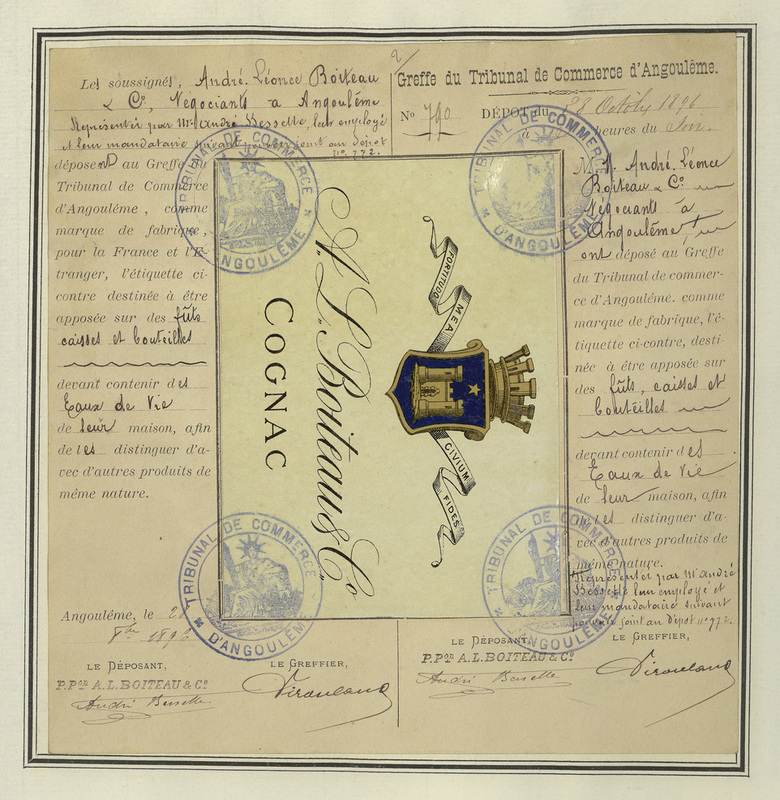 Les soussignés, André Léonce Boiteau
& Co, Négociants à Angoulême
Représentés par Mr André Bessette, leur employé
et leur mandataire suivant pouvoir joint au dépôt
no 772.
déposent au Greffe du
Tribunal de Commerce
d'Angoulême, comme
marque de fabrique,
pour la France et l'E-
tranger, l'étiquette ci-
contre destinée à être
apposée sur des fûts
caisses et bouteilles
devant contenir des
Eaux de Vie
de leur maison, afin
de les distinguer d'a-
vec d'autres produits de
même nature.
Angoulême, le 28
8bre 1896
LE DÉPOSANT,
P.Pon A.L.BOITEAU & Co
André Bessette
LE GREFFIER,
A. L. Boiteau & Co
COGNAC
FORTITUDO MEA
CIVIUM FIDES
TRIBUNAL DE COMMERCE
D'ANGOULÊME
TRIBUNAL DE COMMERCE
D'ANGOULÊME
TRIBUNAL DE COMMERCE
D'ANGOULÊME
TRIBUNAL DE COMMERCE
D'ANGOULÊME
2/
Greffe du Tribunal de Commerce d'Angoulême.
No 790 DÉPÔT du 28 Octobre 1896
à heures du Soir.
M.M. André Léonce
Boiteau & Co
Négociants à
Angoulême
ont déposé au Greffe
du Tribunal de commer-
ce d'Angoulême. comme
marque de fabrique, l'é-
tiquette ci-contre, desti-
née à être apposée sur
des fûts, caisses et
bouteilles
devant contenir des
Eaux de Vie
de leur maison, afin
de les distinguer d'a-
vec d'autres produits de
même nature.
Représentés par Mr André
Bessette leur employé et
leur mandataire suivant
pouvoir joint au dépôt no 772.
LE DÉPOSANT,
P.Pon A.L.BOITEAU & Co
André Bessette
LE GREFFIER,